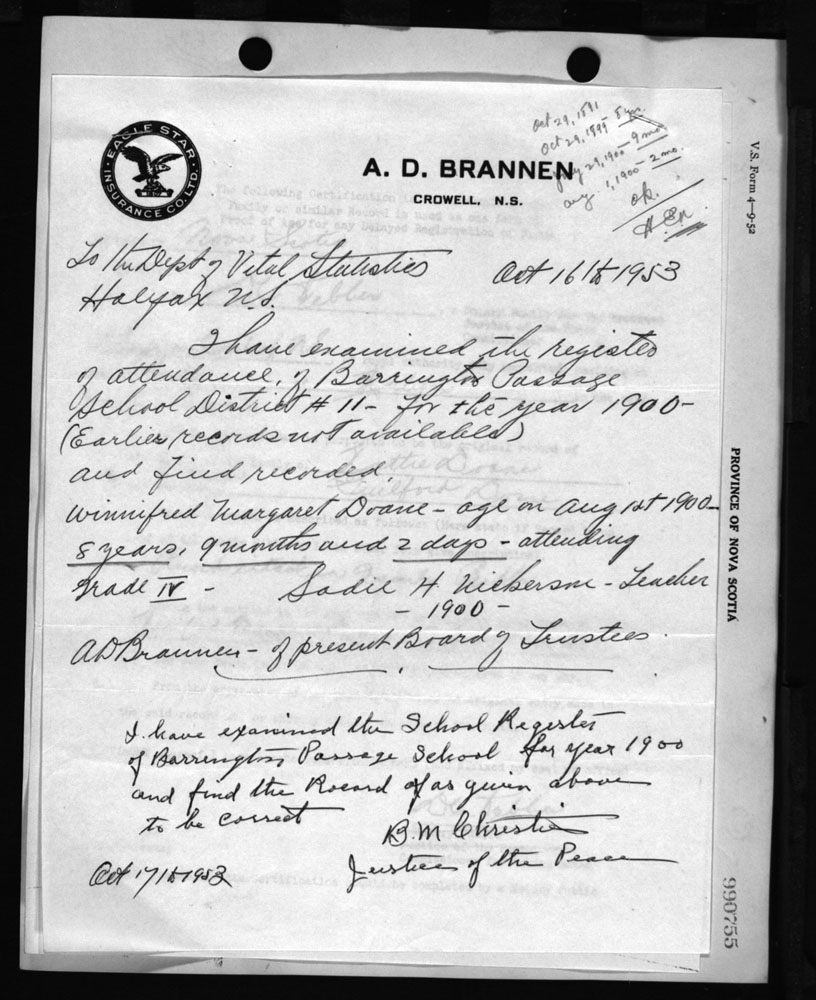 EAGLE STAR
INSURANCE CO. LTD.
A. D. BRANNEN
CROWELL, N.S.
Oct 29, 1891
Oct 29, 1899 - 8 yrs.
July 29, 1900 - 9 mos
Aug. 1, 1900 - 2 
ok.
V.S. Form 4-9-52
To the Dept of Vital Statistics
Oct 16th 1953
Halifax N.S.
I have examined the register
of attendance, of Barrington Passage
School District # 11 - for the year 1900 -
(Earlier records not available)
and find recorded,
Winnifred Margaret Doane - age on Aug 1st 1900 -
8 years, 9 months and 2 days - attending
Grade IV - Sadie H Nickerson - Teacher
- 1900 -
AD Brannen - of present Board of Trustees.
I have examined the School Register
of Barrington Passage School for year 1900
and find the Record of as given above
to be correct
B.M Christie
Justice of the Peace
Oct 17th 1953
PROVINCE OF NOVA SCOTIA
990755